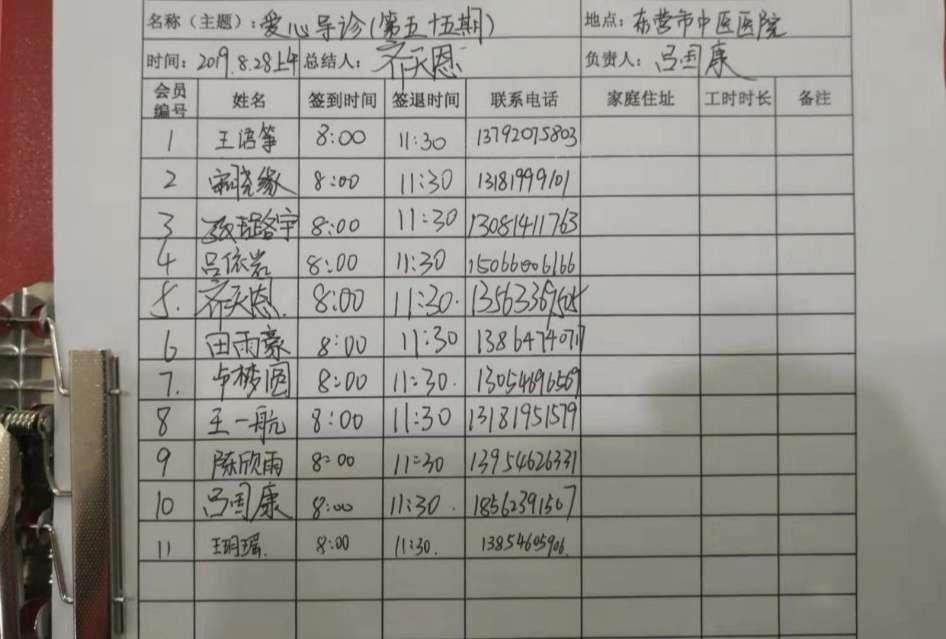 名称（主题）：爱心导诊(第五十五期) 地点：东营市中医医院
时间：2019.8.28上午 总结人：齐天恩 负责人：吕国康
会员编号 姓名 签到时间 签退时间 联系电话 家庭住址 工时时长 备注
1 王语筝 8:00 11:30 13792075803
2 8:00 11:30 13181999101
3 8:00 11:30 13081411763
4 吕依岩 8:00 11:30 15066006166
5. 齐天恩. 8:00 11:30. 13563369505
6 田雨豪 8:00 11:30
7. 卢梦圆 8:00 11:30. 13054696569
8 王一航 8:00 11:30 13181951579
9 陈欣雨 8:00 11:30 13954626331
10 吕国康 8:00 11:30. 18562391507
11 王玥瑶. 8:00 11:30. 13854605906.